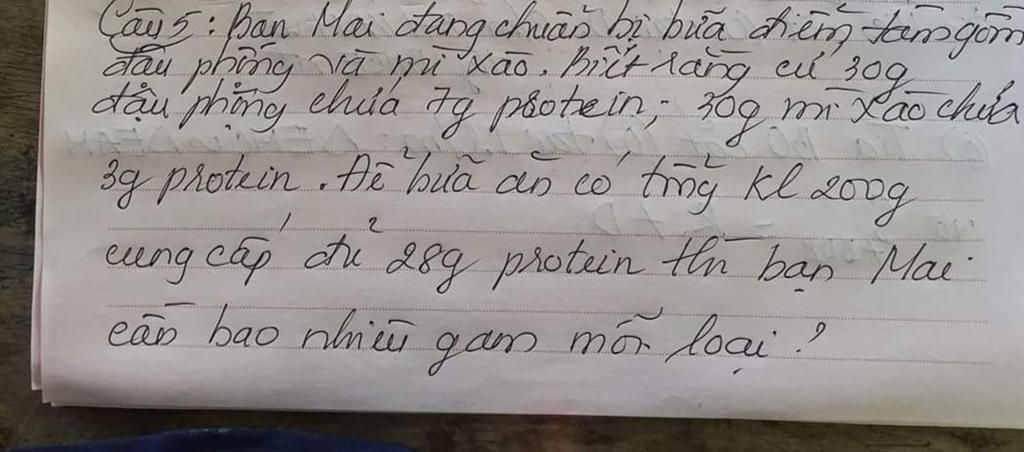 Câu 5: Bạn Mai đang chuẩn bị bữa điểm tâm gồm
đậu phộng và mì xào. Biết rằng cứ 30g
đậu phộng chứa 7g protein; 30g mì xào chứa
3g protein. Để bữa ăn có tổng kl 200g
cung cấp đủ 28g protein thì bạn Mai
cần bao nhiêu gam mỗi loại?